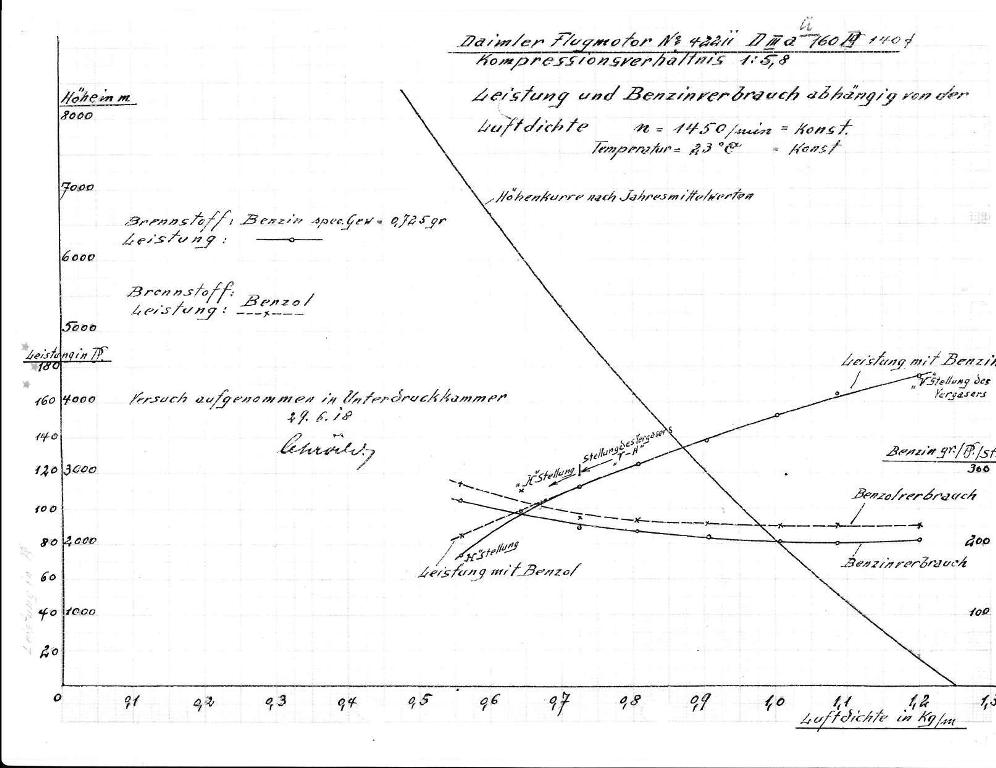 Daimler Flugmotor № 42211 D III a ü 160 PS
Kompressionsverhältnis 1:5,8
Leistung und Benzinverbrauch abhängig von der
Luftdichte n = 1450/min = Konst.
Temperatur = 23°C = Konst
Höhe in m
8000
7000
6000
5000
4000
3000
2000
1000
Höhenkurve nach Jahresmittelwerten
Brennstoff: Benzin spec. Gew = 0,725 gr
Leistung:
Brennstoff: Benzol
Leistung:
Leistung in PS.
180
160
140
120
100
80
60
40
20
Versuch aufgenommen in Unterdruckkammer
29.6.18
Leistung mit Benzin
"V" Stellung des
Vergasers
Stellung des Vergasers
"V-H"
"H" Stellung
Benzin gr./PS/St.
300
200
100
Benzolverbrauch
Benzinverbrauch
"H" Stellung
Leistung mit Benzol
0 0,1 0,2 0,3 0,4 0,5 0,6 0,7 0,8 0,9 1,0 1,1 1,2 1,3
Luftdichte in Kg/m